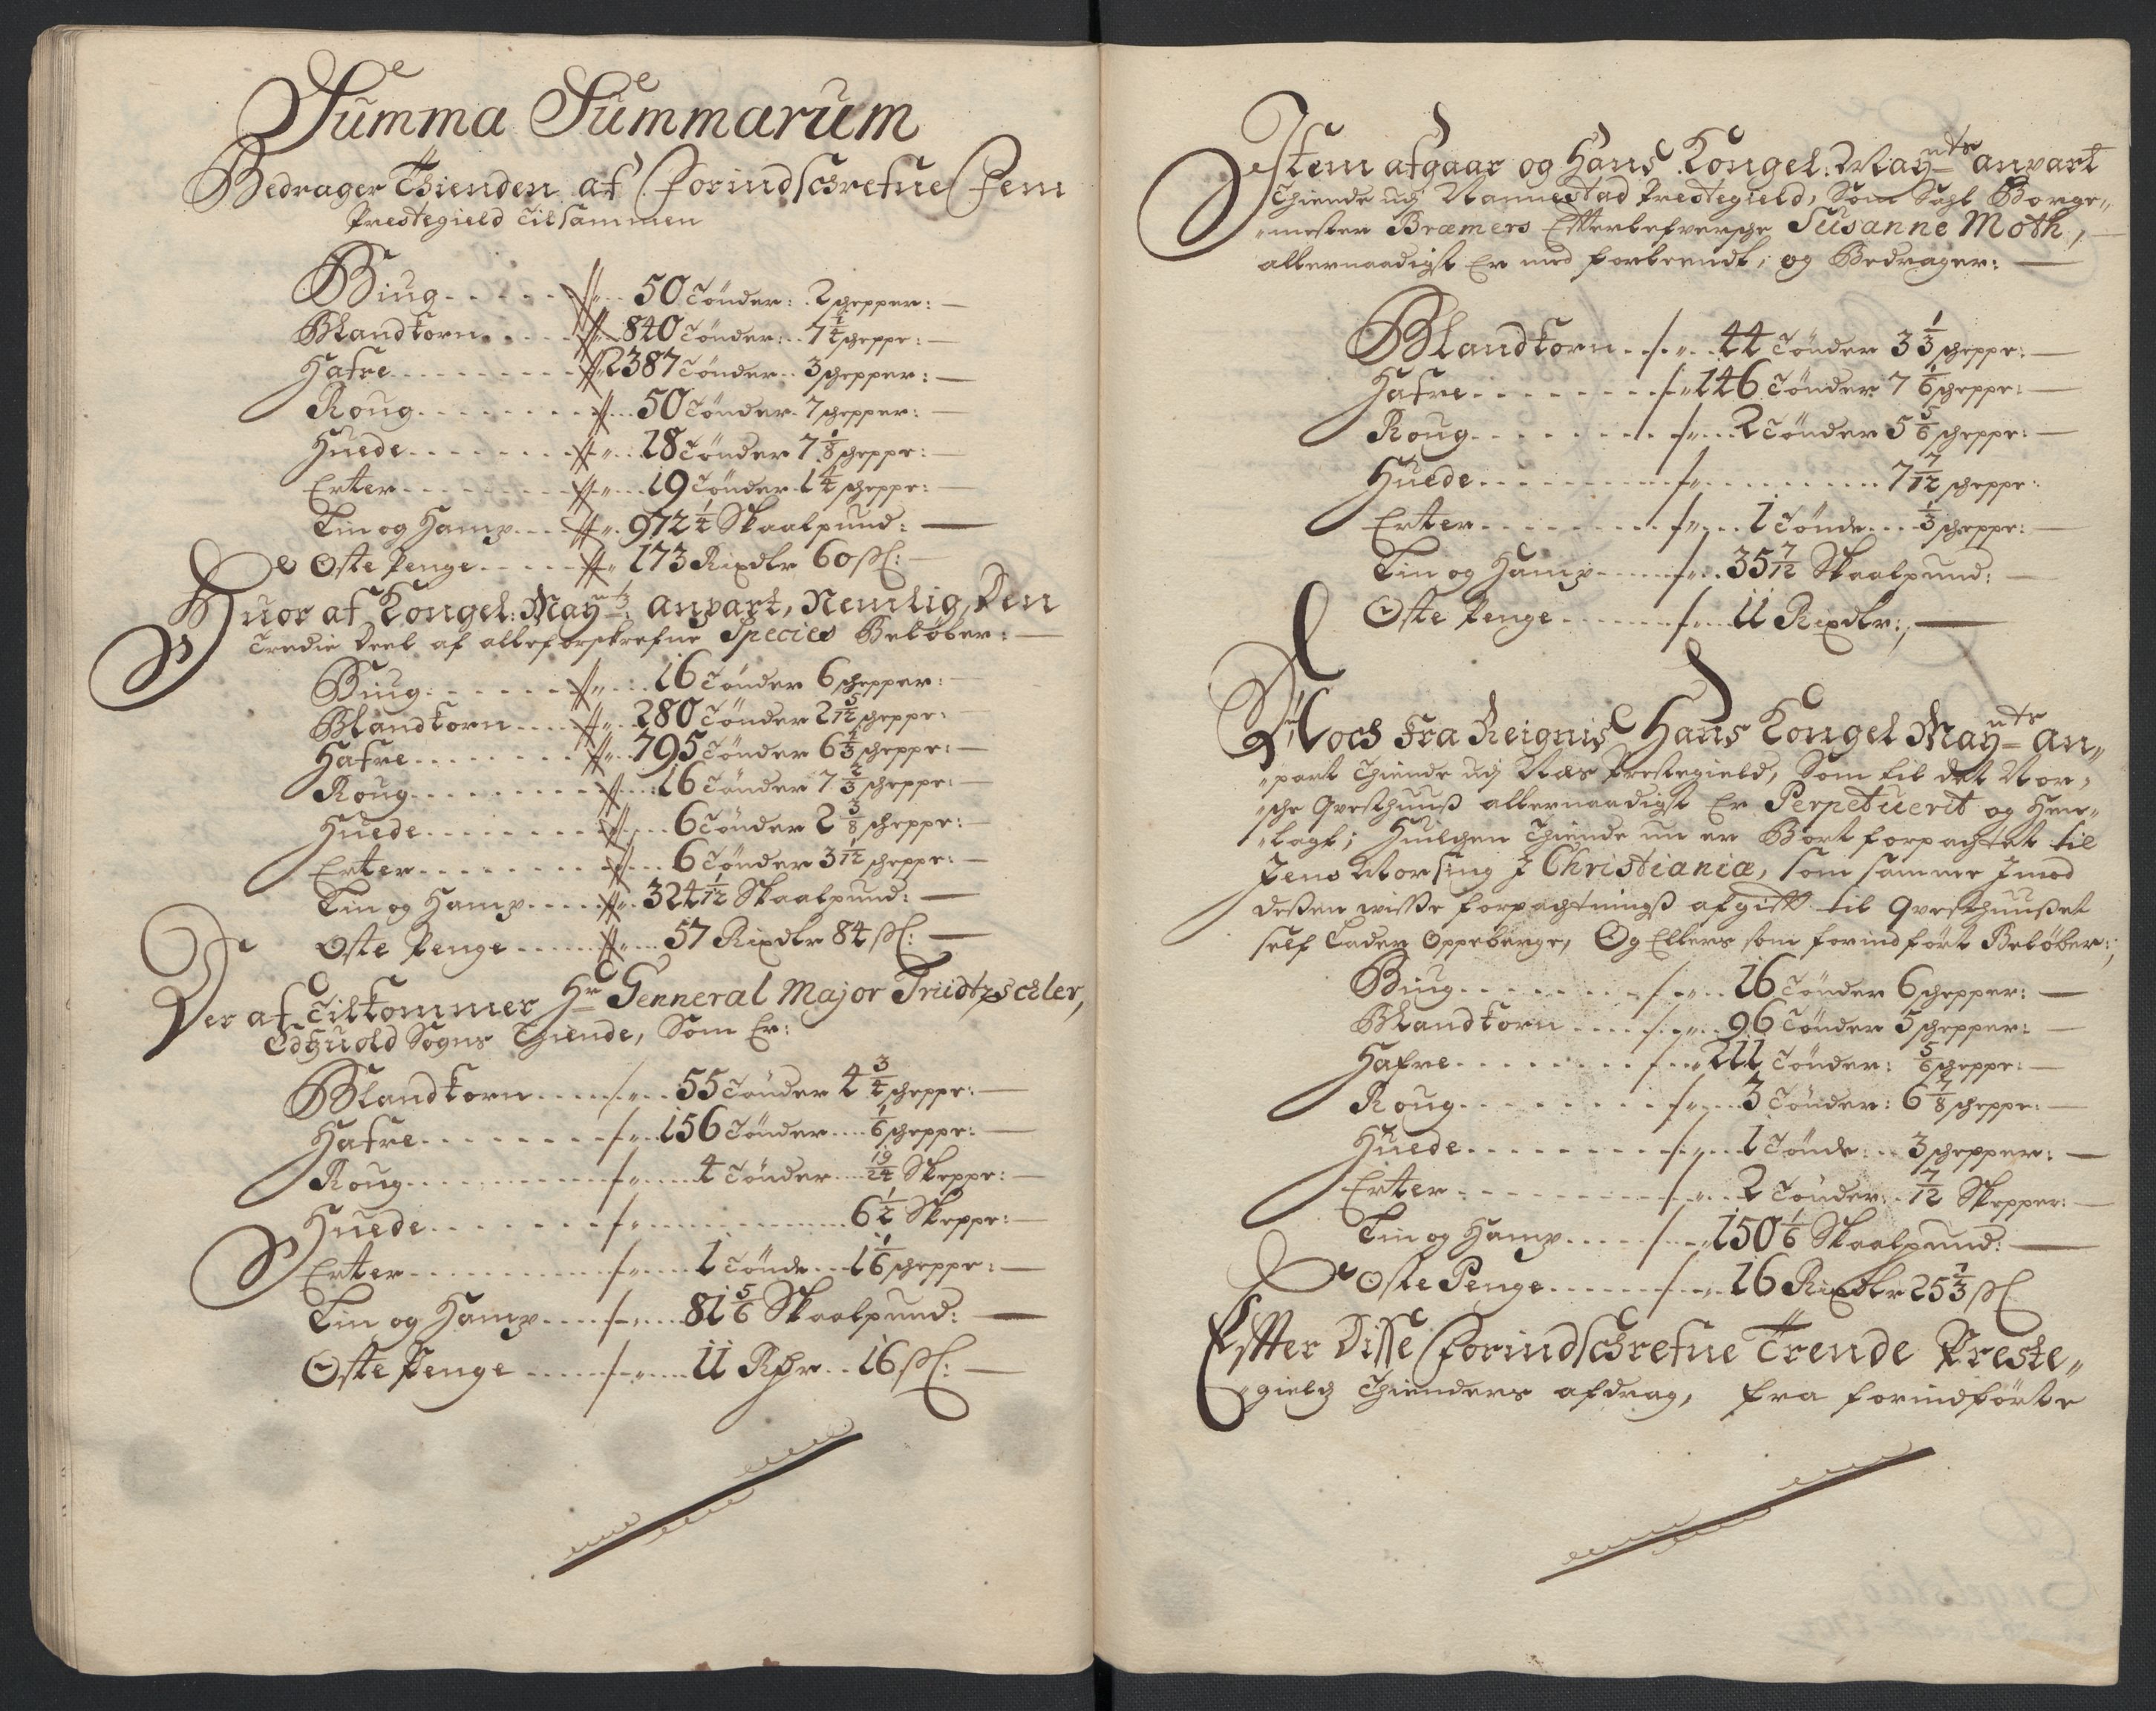 Summa Summarum
Bedrager Thienden af Forindschrefne Fem
Prestegield tilsammen
Biug 50 Tönder: 2 schepper:
Blandkorn 840 Tönder: 7 1/4 scheppe:
Hafre 2387 Tönder 3 schepper:
Roug 50 Tönder 7 schepper:
Huede 18 Tönder 7 1/8 scheppe:
Erter 19 Tönder 1 1/4 scheppe:
Lin og Hamp 972 1/4 Skaalpund:
Oste Penge 173 Rixdlr 60 ſſ:
Huor af Kongel: Maytz: anpart, Nemlig Den
Tredie Deel af alle forskrefne Species Belöber:
Biug 16 Tönder 6 schepper:
Blandkorn 280 Tönder 2 5/12 scheppe:
Hafre 795 Tönder 6 1/3 scheppe:
Roug 16 Tönder 7 2/3 scheppe:
Huede 6 Tönder 2 3/8 scheppe:
Erter 6 Tönder 3 1/12 scheppe:
Lin og Hamp 324 1/12 Skaalpund:
Oste Penge 57 Rixdlr 84 ſſ:
Der af Tilkommer Hr Genneral Major Triidtzschler,
Edhuold Sogns Thiende, Som Er:
Blandkorn 55 Tönder 4 3/4 scheppe:
Hafre 156 Tönder 1/6 scheppe:
Roug 4 Tönder 19/24 Skeppe:
Huede 6 1/2 Skeppe:
Erter 1 Tönde 1 1/6 scheppe:
Lin og Hamp 81 5/6 Skaalpund:
Oste Penge 11 Rdr 16 ſſ:
Item afgaar og Hans Kongel: Mayts anpart
Thiende udj Nannestad Prestegield, Som Sahl Borge„
„mester Bræmers Efterlefversche Susanne Moth,
allernaadigst Er med forleendt, og Bedrager:
Blandkorn 44 Tönder 3 1/3 scheppe:
Hafre 146 Tönder 7 1/6 scheppe:
Roug 2 Tönder 5 5/6 scheppe:
Huede 7 7/12 scheppe:
Erter 1 Tönde 1/3 scheppe:
Lin og Hamp 35 7/12 Skaalpund:
Oste Penge 11 Rixdlr:,
Nock Fra Reignis Hans Kongel Mayts an„
„part Thiende udj Næs Prestegield, Som til det Nor„
„sche Qvesthuuß allernaadigst Er Perpetuerit og Hen„
„lagt; Huilchen Thiende nu er Bort forpachtet til
Jens Morsing J Christiania, som samme Jmod
deßen wisse forpachtningß afgift til Qvesthuußet
self Lader Oppeberge, Og Ellers som forindfört Belöber:
Biug 16 Tönder 6 schepper:
Blandkorn 96 Tönder 5 schepper:
Hafre 211 Tönder: 5/6 scheppe:
Roug 3 Tönder: 6 7/8 scheppe:
Huede 1 Tönde: 3 schepper:
Erter 2 Tönder: 7/12 Skepper:
Lin og Hamp 150 1/6 Skaalpund:
Oste Penge 16 Rixdlr 25 1/3 ſſ
Efter Disse Forindschrefne Trende Preste„
„gield Thienders afdrag, fra forindförte